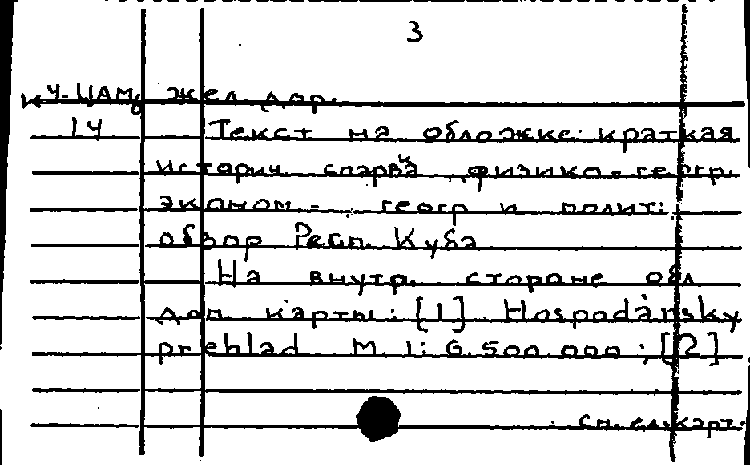 3
Ч-ЦАМ жел. дор.
14 Текст на обложке: краткая
историч. справка, физико-геогр.
эконом. - геогр и полит.
обзор Респ. Куба
На внутр. стороне обл
доп карты: [1] Hospodánsky
prehlad М 1: 6.500 000; [2]
см. сл. карт.